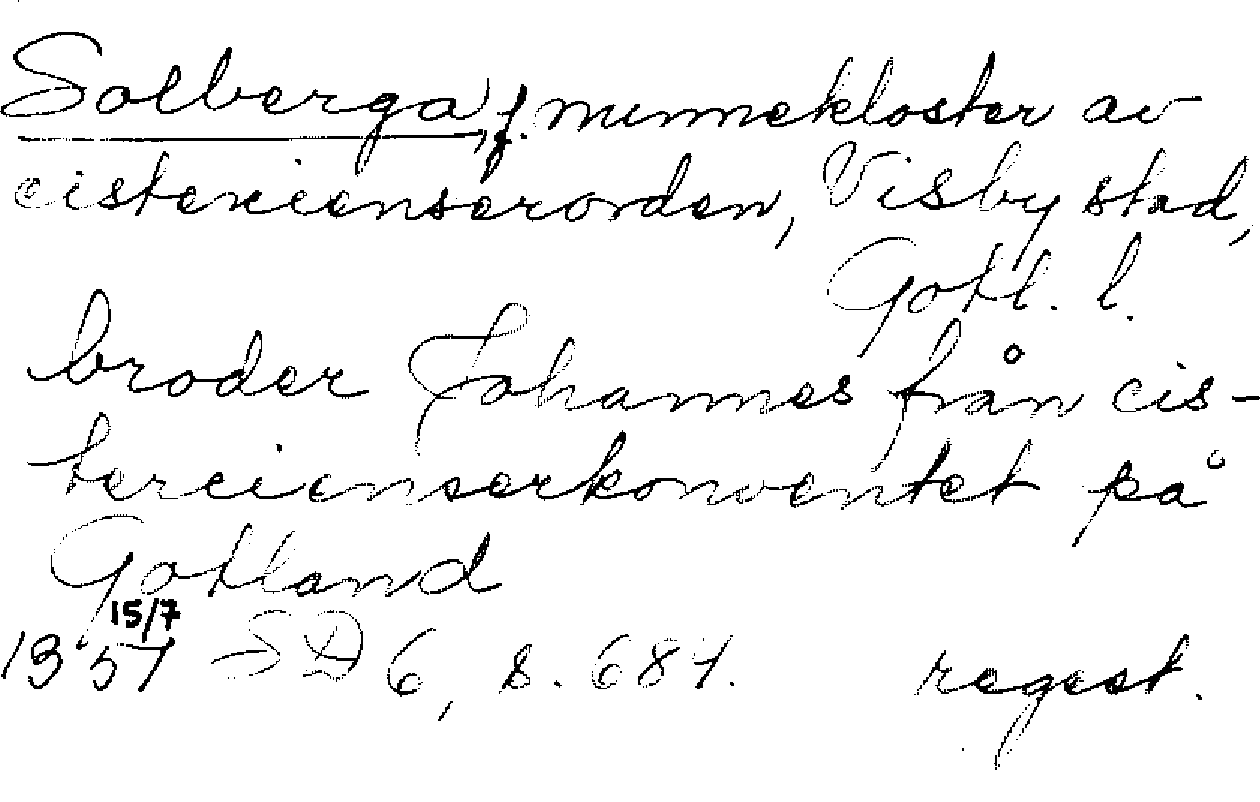 Solberga, f. nunnekloster av
cistercienserorden, Visby stad,
Gotl. l.
broder Johannes från cis-
tercienserkonventet på
Gotland
15/7
1357 SD 6, s. 687. regest.